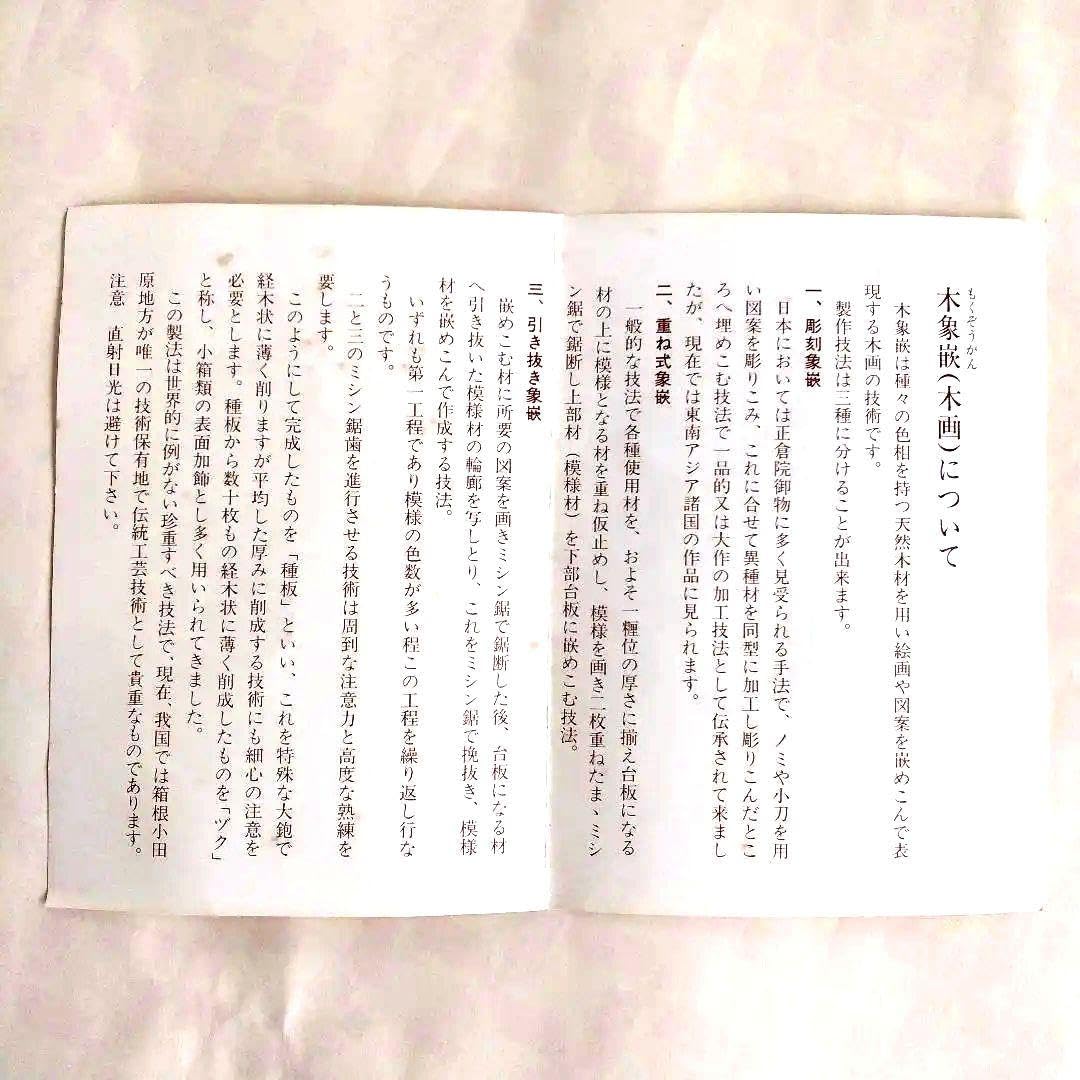 もくぞうがん
木象嵌(木画)について
木象嵌は種々の色相を持つ天然木材を用い絵画や図案を嵌めこんで表
現する木画の技術です。
製作技法は三種に分けることが出来ます。
一、彫刻象嵌
日本においては正倉院御物に多く見受られる手法で、ノミや小刀を用
い図案を彫りこみ、これに合せて異種材を同型に加工し彫りこんだとこ
ろへ埋めこむ技法で一品的又は大作の加工技法として伝承されて来まし
たが、現在では東南アジア諸国の作品に見られます。
二、重ね式象嵌
一般的な技法で各種使用材を、およそ一糎位の厚さに揃え台板になる
材の上に模様となる材を重ね仮止めし、模様を画き二枚重ねたまゝミシ
ン鋸で鋸断し上部材（模様材）を下部台板に嵌めこむ技法。
三、引き抜き象嵌
嵌めこむ材に所要の図案を画きミシン鋸で鋸断した後、台板になる材
へ引き抜いた模様材の輪廊を写しとり、これをミシン鋸で挽抜き、模様
材を嵌めこんで作成する技法。
いずれも第一工程であり模様の色数が多い程この工程を繰り返し行な
うものです。
二と三のミシン鋸歯を進行させる技術は周到な注意力と高度な熟練を
要します。
このようにして完成したものを「種板」といい、これを特殊な大鉋で
経木状に薄く削りますが平均した厚みに削成する技術にも細心の注意を
必要とします。種板から数十枚もの経木状に薄く削成したものを「ヅク」
と称し、小箱類の表面加飾とし多く用いられてきました。
この製法は世界的に例がない珍重すべき技法で、現在、我国では箱根小田
原地方が唯一の技術保有地で伝統工芸技術として貴重なものであります。
注意　直射日光は避けて下さい。